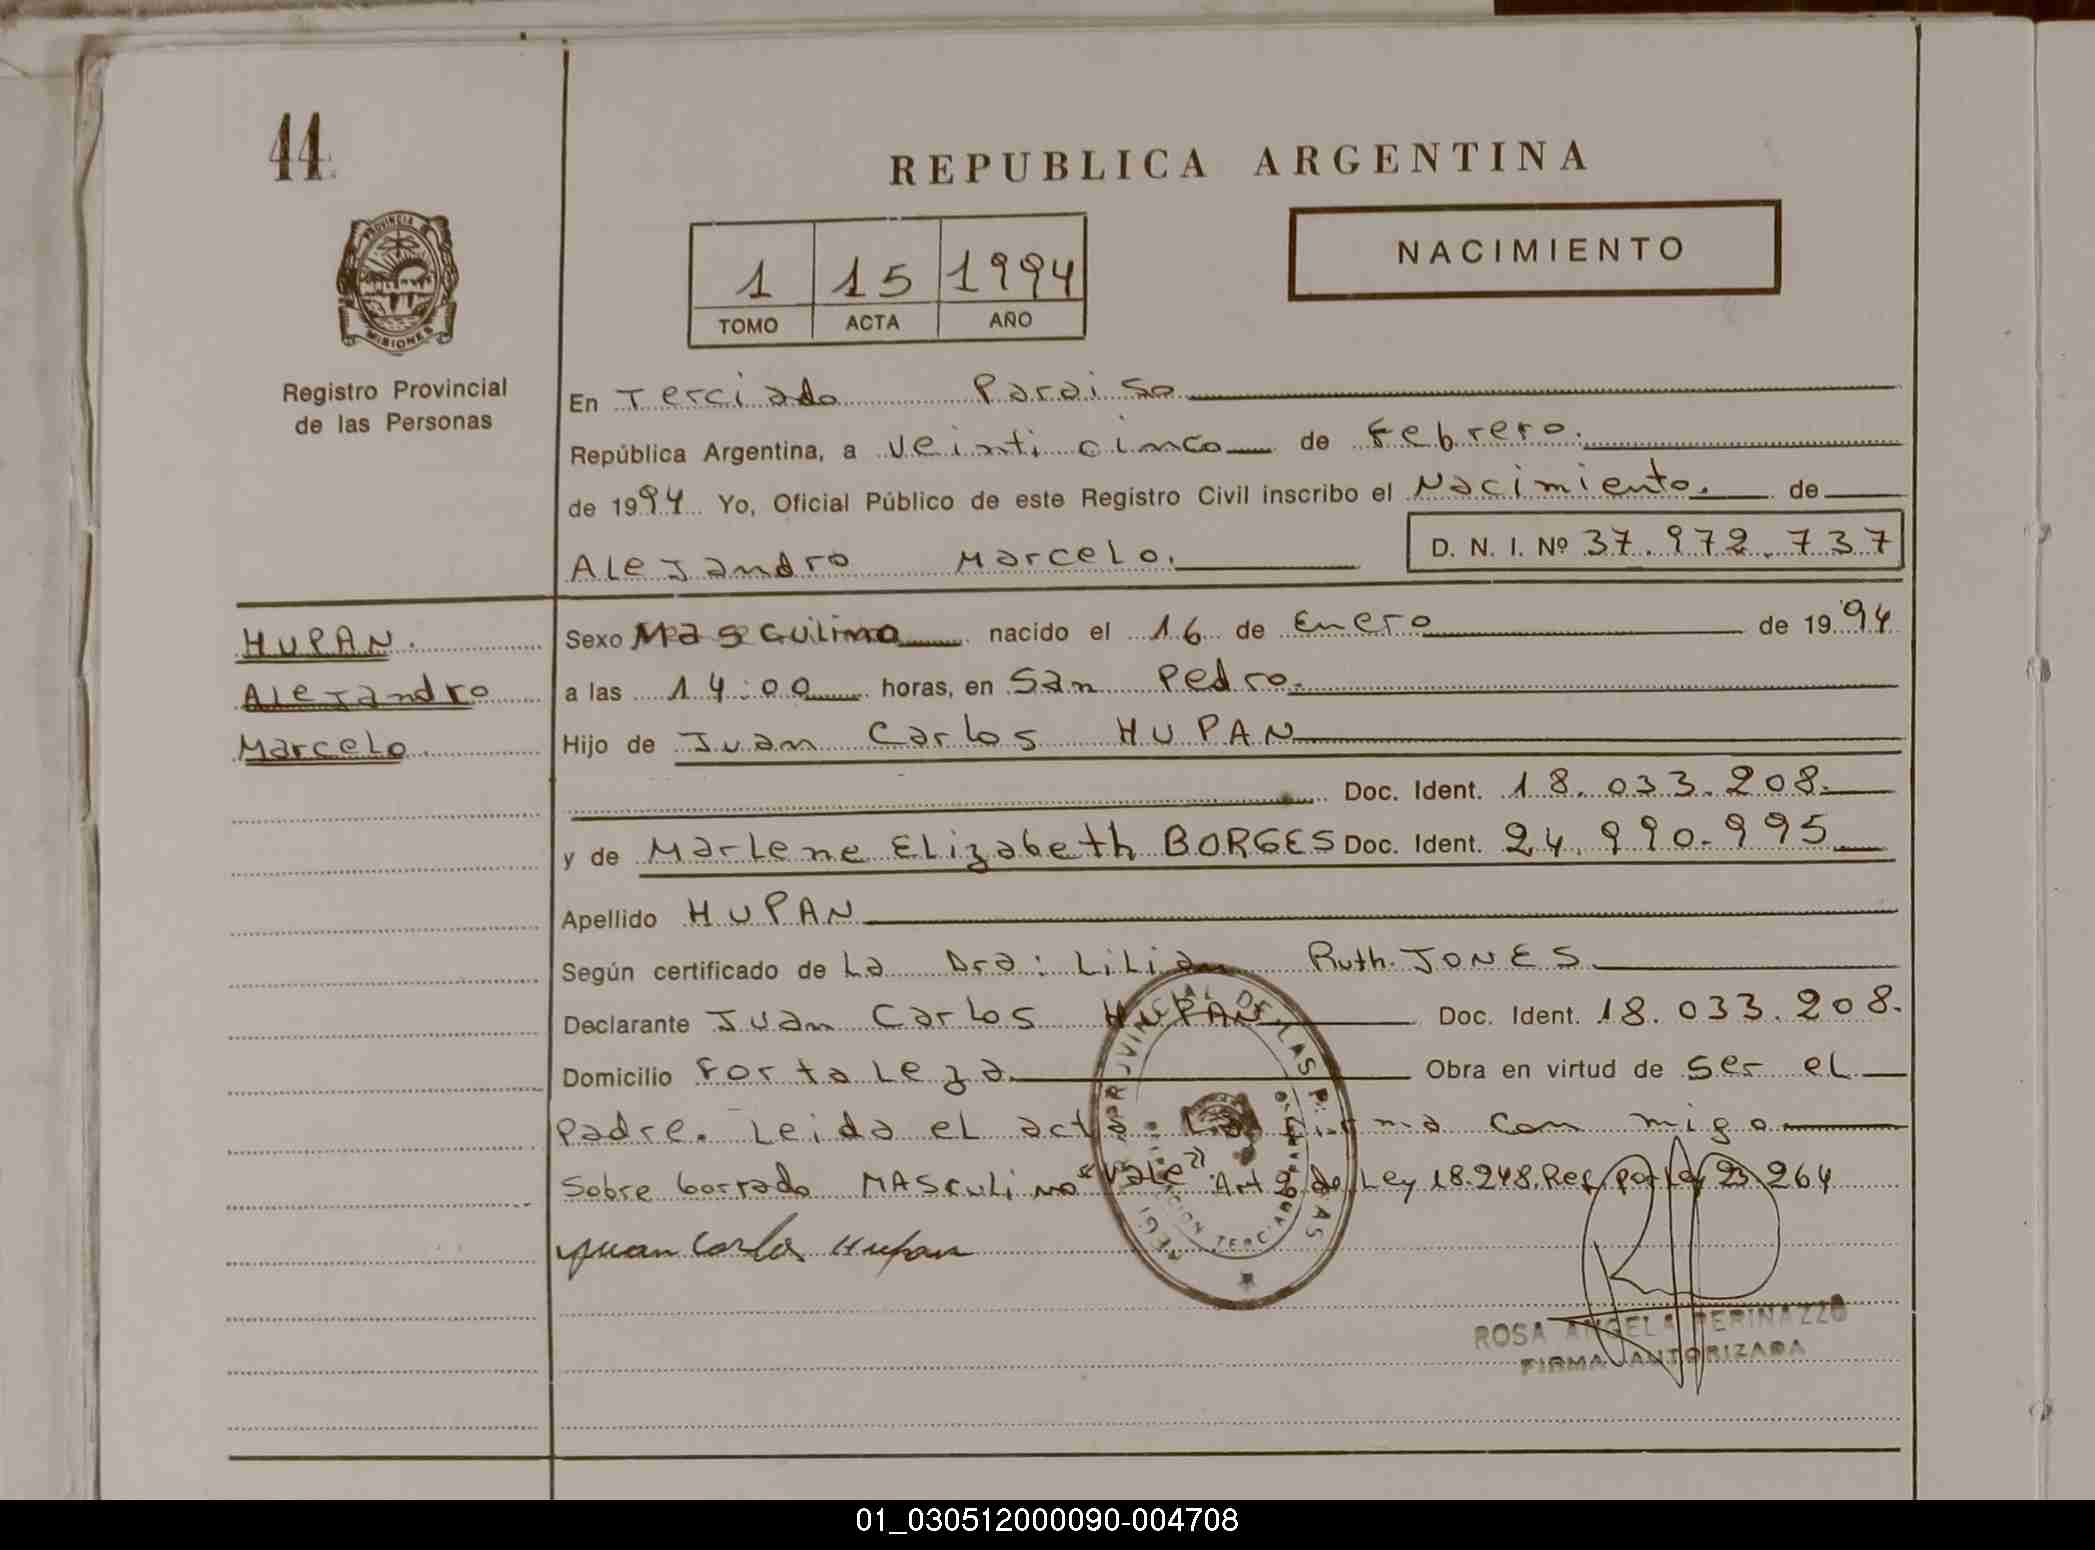 44
REPUBLICA ARGENTINA
PROVINCIA DE
MISIONES
1 15 1994
TOMO ACTA AÑO
NACIMIENTO
Registro Provincial
de las Personas
En Terciado Paraiso
República Argentina, a veinti cinco de Febrero.
de 1994 Yo, Oficial Público de este Registro Civil inscribo el Nacimiento. de
Alejandro Marcelo. D. N. I. Nº 37.972.737
HUPAN.
Alejandro
Marcelo
Sexo Masculino nacido el 16 de Enero de 1994
a las 14:00 horas, en San Pedro.
Hijo de Juan Carlos HUPAN
Doc. Ident. 18.033.208.
y de Marlene Elizabeth BORGES Doc. Ident. 24.990.995
Apellido HUPAN
Según certificado de La Dra: Lilian Ruth JONES
Declarante Juan Carlos HUPAN Doc. Ident. 18.033.208.
Domicilio Fortaleza Obra en virtud de ser el
padre. Leida el acta La firma con migo
Sobre borrado MASculino "Vale" Art 2 de Ley 18.248. Ref. por Ley 23.264
Juan Carlos Hupan
ROSA ANGELA PERINAZZO
FIRMA AUTORIZADA
01_030512000090-004708